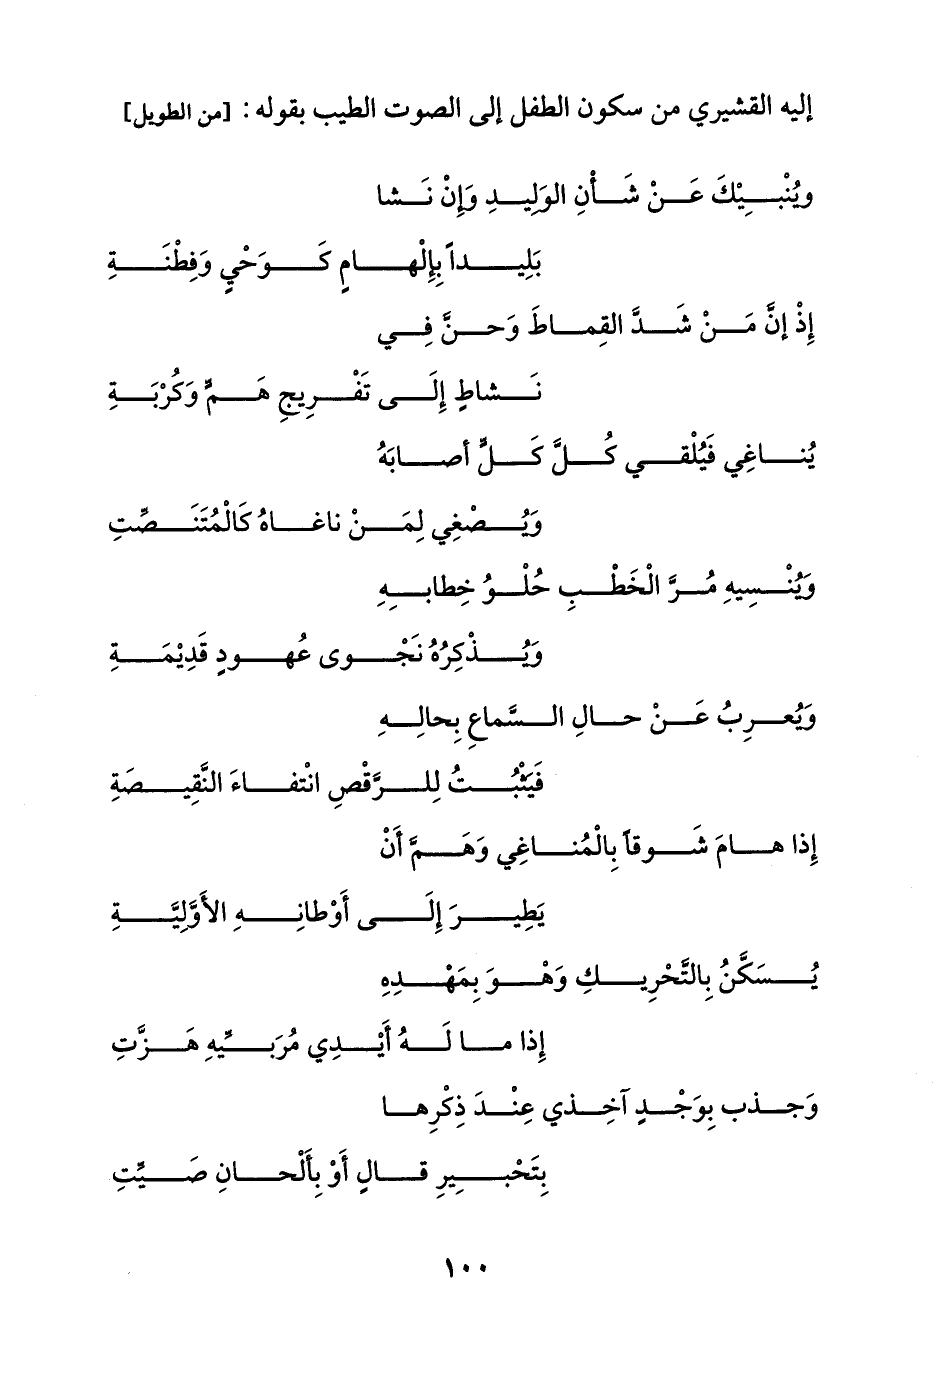 إليه القشيري من سكون الطفل إلى الصوت الطيب بقوله : [من الطويل]
ويُنْبِيْكَ عَنْ شَأْنِ الوَلِيدِ وَإِنْ نَشا
بَلِيداً بِإِلْهامٍ كَوَحْيٍ وَفِطْنَةِ
إِذْ إنَّ مَنْ شَدَّ القِماطَ وَحنَّ فِي
نَشاطٍ إِلَى تَفْرِيجِ هَمٍّ وَكُرْبَةِ
يُناغِي فَيُلْقي كُلَّ كَلٍّ أصابَهُ
وَيُصْغِي لِمَنْ ناغاهُ كَالْمُتَنَصِّتِ
وَيُنْسِيهِ مُرَّ الْخَطْبِ حُلْوُ خِطابِهِ
وَيُذْكِرُهُ نَجْوى عُهودٍ قَدِيْمَةِ
وَيُعرِبُ عَنْ حالِ السَّماعِ بِحالِهِ
فَيَثْبُتُ لِلرَّقْصِ انْتفاءَ النَّقِيصَةِ
إِذا هامَ شَوقاً بِالْمُناغِي وَهَمَّ أَنْ
يَطِيرَ إِلَى أَوْطانِهِ الأَوَّلِيَّةِ
يُسَكَّنُ بِالتَّحْرِيكِ وَهْوَ بِمَهْدِهِ
إِذا ما لَهُ أَيْدِي مُرَبِّيهِ هَزَّتِ
وَجذب بِوَجْدٍ آخِذي عِنْدَ ذِكْرِها
بِتَحْبِيرِ قالٍ أَوْ بِأَلْحانِ صَيِّتِ
١٠٠